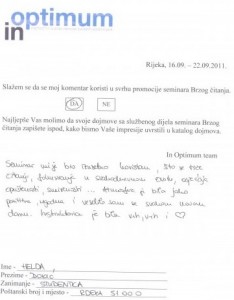 in optimum
Rijeka, 16.09. – 22.09.2011.
Slažem se da se moj komentar koristi u svrhu promocije seminara Brzog
čitanja.
DA NE
Najljepše Vas molimo da svoje dojmove sa službenog dijela seminara Brzog
čitanja zapišete ispod, kako bismo Vaše impresije uvrstili u katalog dojmova.
In Optimum team
Seminar mi je bio izuzetno koristan, što se tiče
čitanja, fokusiranja u svakodnevnom životu, osjećaja
opuštenosti, smirenosti ... atmosfera je bila jako
pozitivna, ugodna i veselila sam se svakom novom
danu. Instruktorica je bila vrh, vrh i ♡
Ime – HELDA,
Prezime –
Zanimanje – STUDENTICA
Poštanski broj i mjesto – RIJEKA 51000